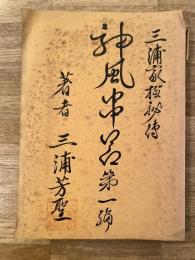 三浦家極秘傳
神風串呂 第一編
著者 三浦芳聖